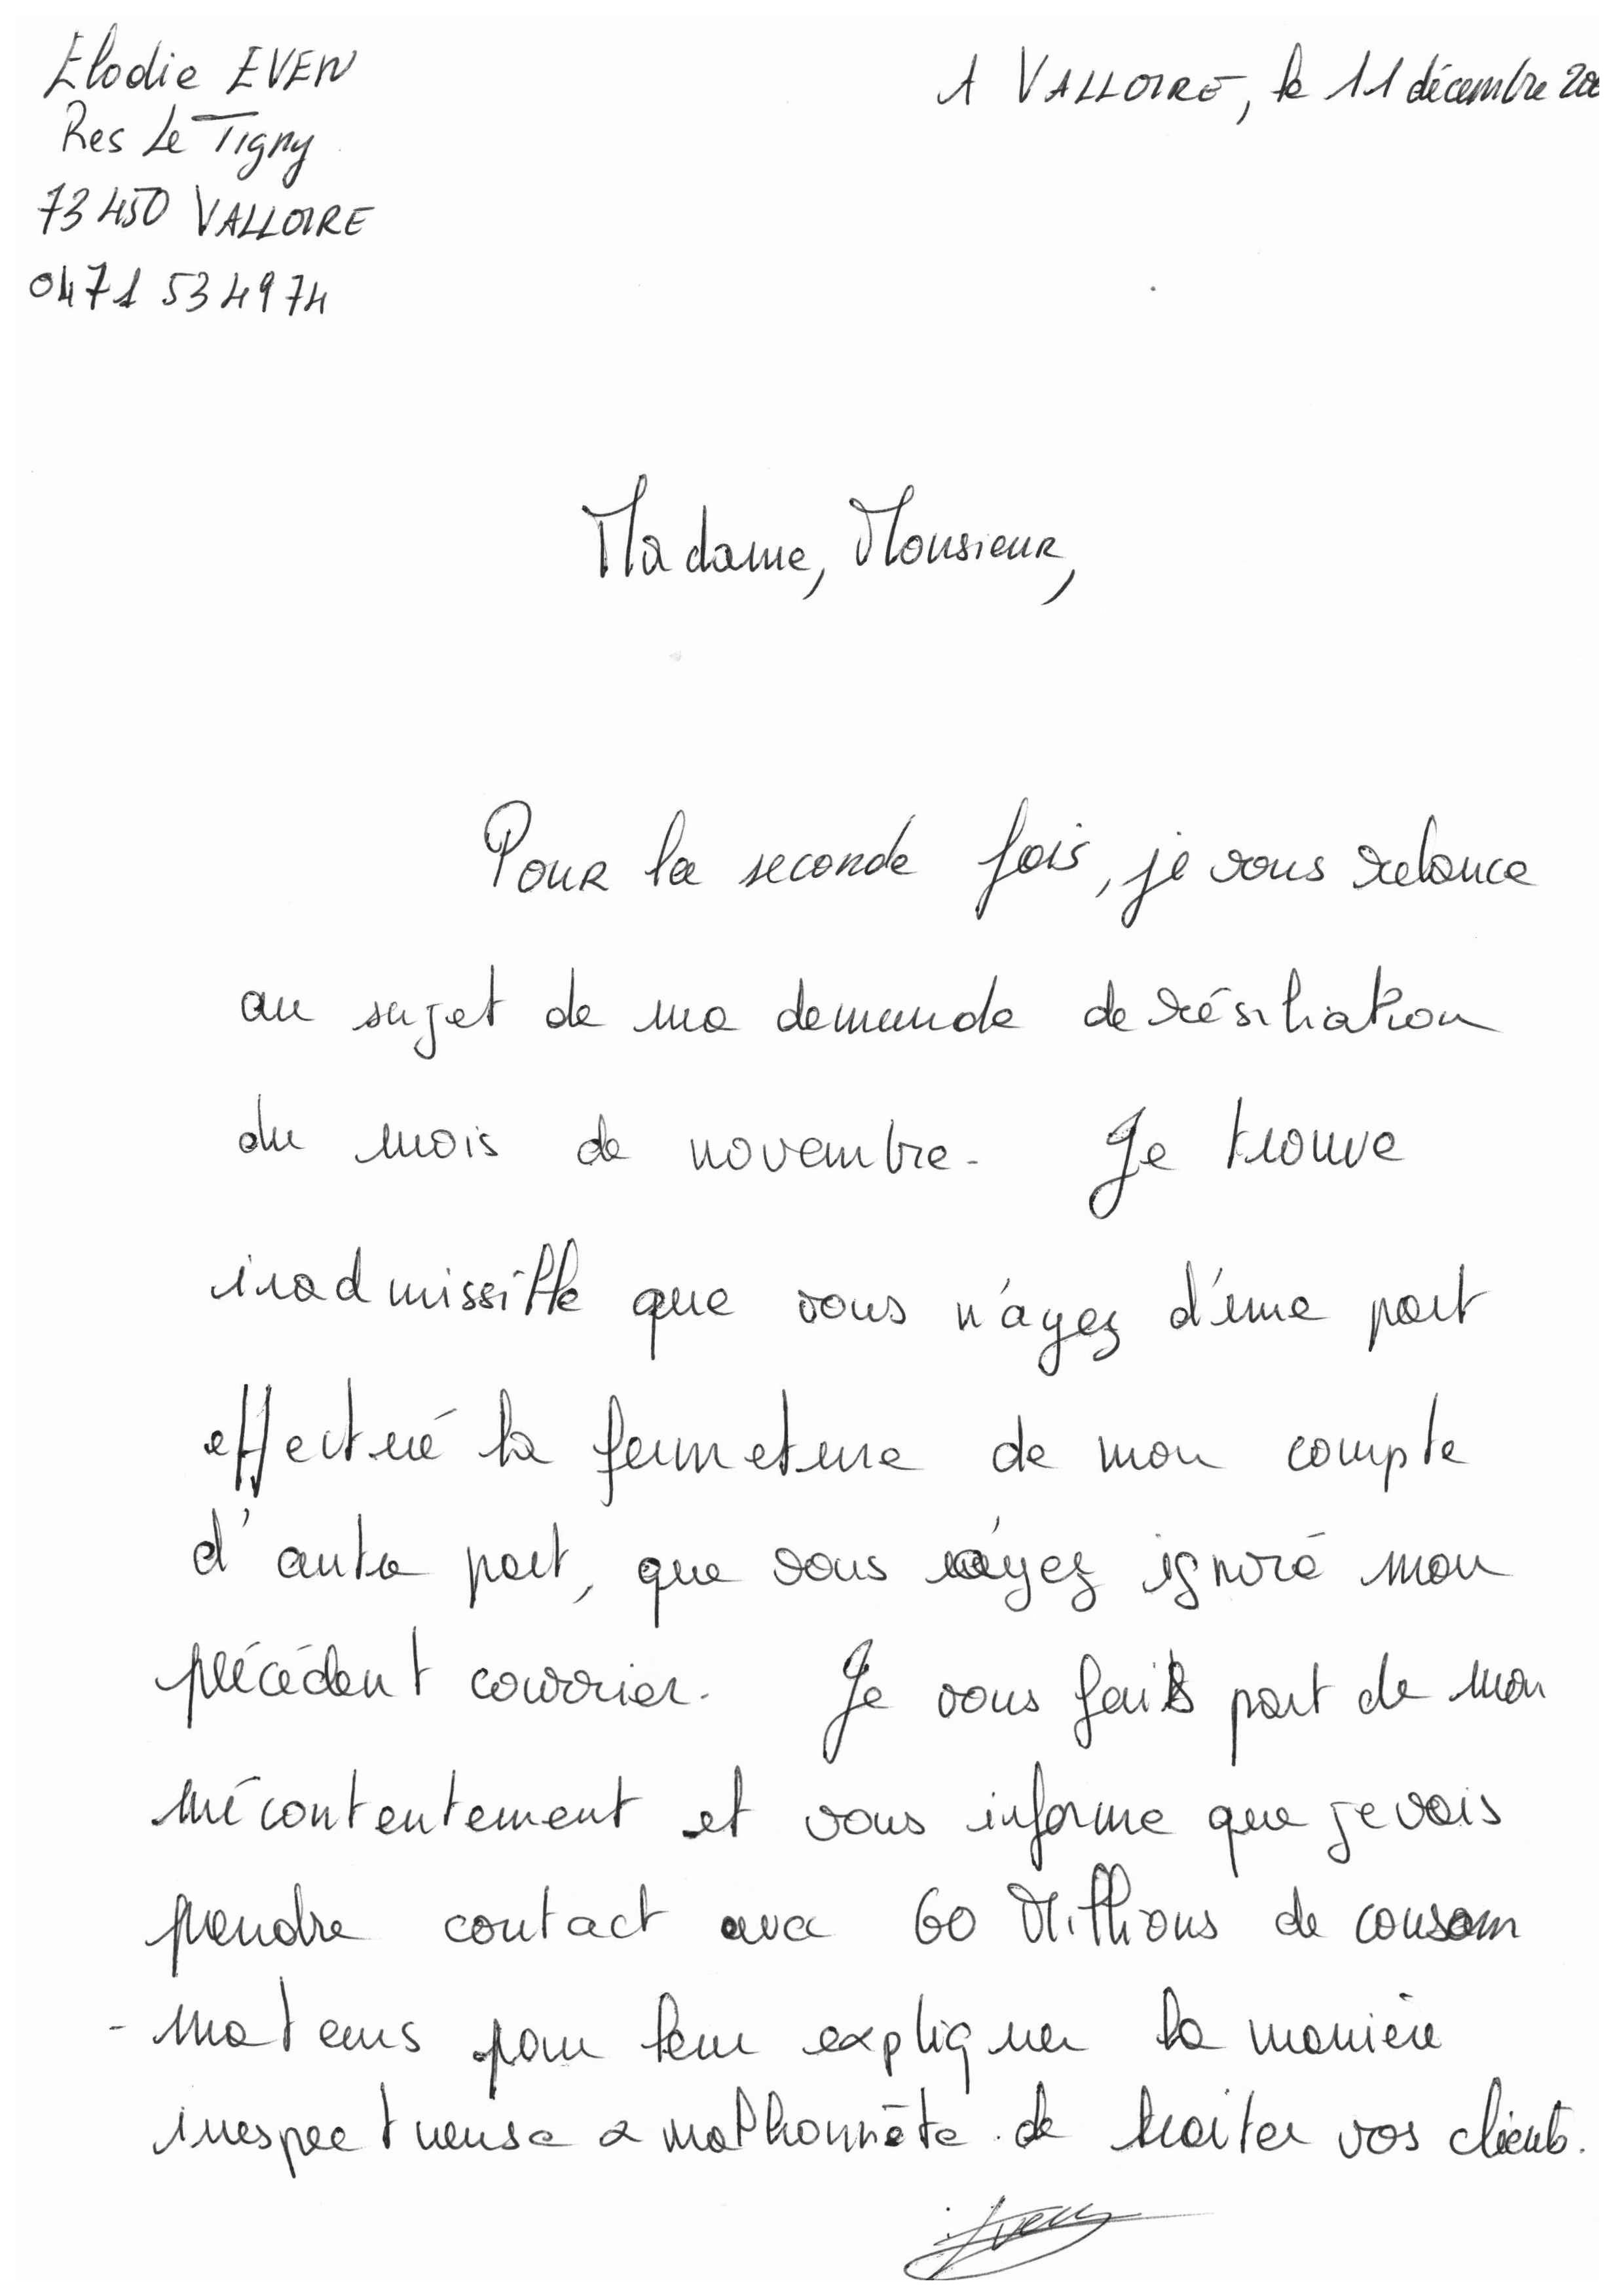 Elodie EVEN
Res Le Tigny
73450 VALLOIRE
0471 534974
A VALLOIRE, le 11 décembre 200
Madame, Monsieur,
Pour la seconde fois, je vous relance
au sujet de ma demande de résiliation
du mois de novembre. Je trouve
inadmissible que vous n'ayez d'une part
effectué la fermeture de mon compte
d'autre part, que vous n'ayez ignoré mon
précédent courrier. Je vous fais part de mon
mécontentement et vous informe que je vais
prendre contact avec 60 Millions de consom
-mateurs pour leur expliquer la manière
irrespectueuse & malhonnête de traiter vos clients.
Even